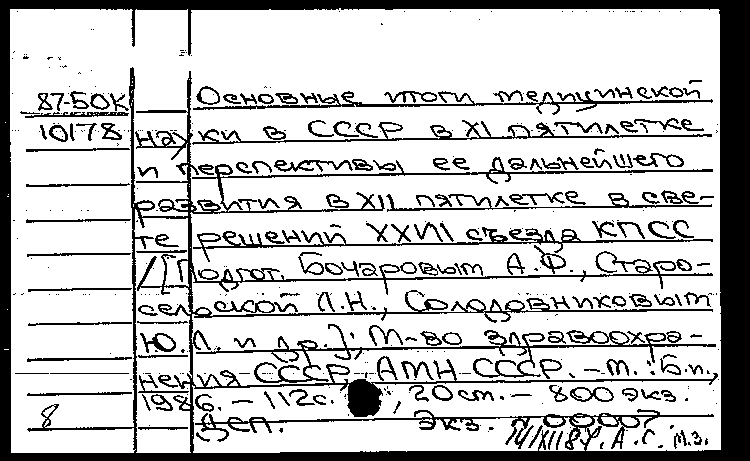 87-БОК Основные итоги медицинской
10178 науки в СССР в XI пятилетке
и перспективы ее дальнейшего
развития в XII пятилетке в све-
те решений XXVII съезда КПСС
/[Подгот. Бочаровым А.Ф., Старо-
сельской Л.Н., Солодовниковым
Ю.Л. и др.]; М-во здравоохра-
нения СССР, АМН СССР. - М.: Б.и.,
1986. - 112с. , 20см. - 800 экз.
8 Деп. Экз. 
А.С. М.З.